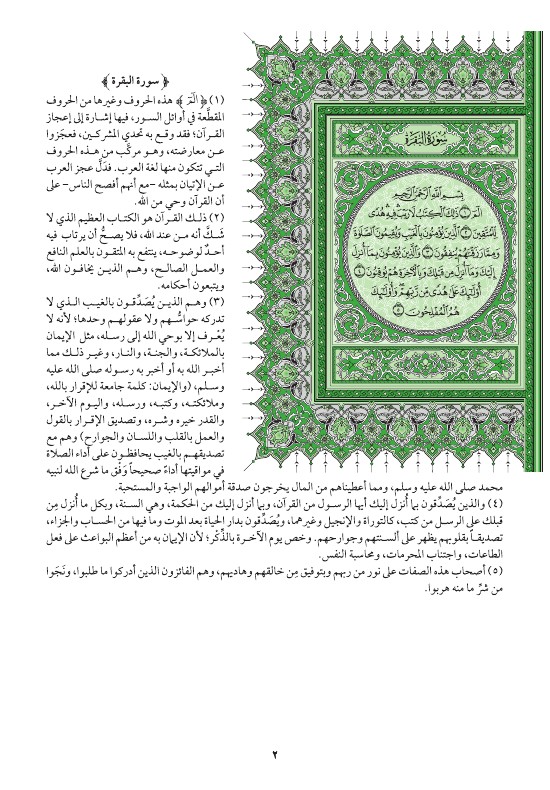 ﴿ سورة البقرة ﴾
(١) ﴿ الٓمٓ ﴾ هذه الحروف وغيرها من الحروف
المقطَّعة في أوائل السور، فيها إشارة إلى إعجاز
القرآن؛ فقد وقع به تحدي المشركين، فعجَزوا
عن معارضته، وهو مركَّب من هذه الحروف
التي تتكون منها لغة العرب. فدَلَّ عجز العرب
عن الإتيان بمثله -مع أنهم أفصح الناس- على
أن القرآن وحي من الله.
(٢) ذلك القرآن هو الكتاب العظيم الذي لا
شَكَّ أنه من عند الله، فلا يصحُّ أن يرتاب فيه
أحدٌ لوضوحه، ينتفع به المتقون بالعلم النافع
والعمل الصالح، وهم الذين يخافون الله،
ويتبعون أحكامه.
(٣) وهم الذين يُصَدِّقون بالغيب الذي لا
تدركه حواسُّهم ولا عقولهم وحدها؛ لأنه لا
يُعْرف إلا بوحي الله إلى رسله، مثل الإيمان
بالملائكة، والجنة، والنار، وغير ذلك مما
أخبر الله به أو أخبر به رسوله صلى الله عليه
وسلم، (والإيمان: كلمة جامعة للإقرار بالله،
وملائكته، وكتبه، ورسله، واليوم الآخر،
والقدر خيره وشره، وتصديق الإقرار بالقول
والعمل بالقلب واللسان والجوارح) وهم مع
تصديقهم بالغيب يحافظون على أداء الصلاة
في مواقيتها أداءً صحيحاً وَفْق ما شرع الله لنبيه
محمد صلى الله عليه وسلم، ومما أعطيناهم من المال يخرجون صدقة أموالهم الواجبة والمستحبة.
(٤) والذين يُصَدِّقون بما أُنزل إليك أيها الرسول من القرآن، وبما أنزل إليك من الحكمة، وهي السنة، وبكل ما أُنزل مِن
قبلك على الرسل من كتب، كالتوراة والإنجيل وغيرهما، ويُصَدِّقون بدار الحياة بعد الموت وما فيها من الحساب والجزاء،
تصديقاً بقلوبهم يظهر على ألسنتهم وجوارحهم. وخص يوم الآخرة بالذِّكْر؛ لأن الإيمان به من أعظم البواعث على فعل
الطاعات، واجتناب المحرمات، ومحاسبة النفس.
(٥) أصحاب هذه الصفات على نور من ربهم وبتوفيق مِن خالقهم وهاديهم، وهم الفائزون الذين أدركوا ما طلبوا، ونَجَوا
من شرِّ ما منه هربوا.
سُورَةُ البَقَرَةِ
بِسْمِ ٱللَّهِ ٱلرَّحْمَٰنِ ٱلرَّحِيمِ
الٓمٓ ١ ذَٰلِكَ ٱلْكِتَٰبُ لَا رَيْبَ فِيهِ هُدًى
لِّلْمُتَّقِينَ ٢ ٱلَّذِينَ يُؤْمِنُونَ بِٱلْغَيْبِ وَيُقِيمُونَ ٱلصَّلَوٰةَ
وَمِمَّا رَزَقْنَٰهُمْ يُنفِقُونَ ٣ وَٱلَّذِينَ يُؤْمِنُونَ بِمَآ أُنزِلَ
إِلَيْكَ وَمَآ أُنزِلَ مِن قَبْلِكَ وَبِٱلْأَخِرَةِ هُمْ يُوقِنُونَ ٤
أُوْلَٰٓئِكَ عَلَىٰ هُدًى مِّن رَّبِّهِمْ وَأُوْلَٰٓئِكَ
هُمُ ٱلْمُفْلِحُونَ ٥
٢